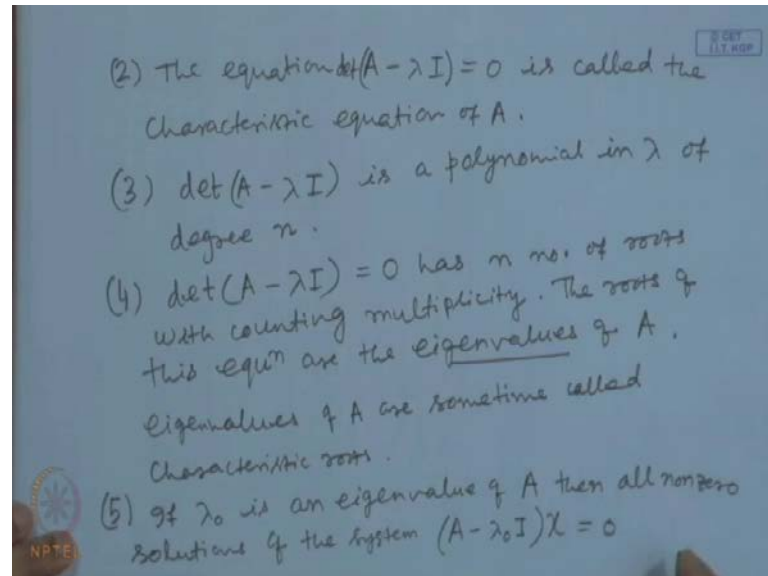 © CET
I.I.T. KGP
(2) The equation det(A - λI) = 0 is called the
Characteristic equation of A.
(3) det (A - λI) is a polynomial in λ of
degree n.
(4) det (A - λI) = 0 has n no. of roots
with counting multiplicity. The roots of
this equn are the eigenvalues of A.
eigenvalues of A are sometime called
Characteristic roots.
(5) If λ₀ is an eigenvalue of A then all nonzero
solutions of the system (A - λ₀I)X = 0
NPTEL